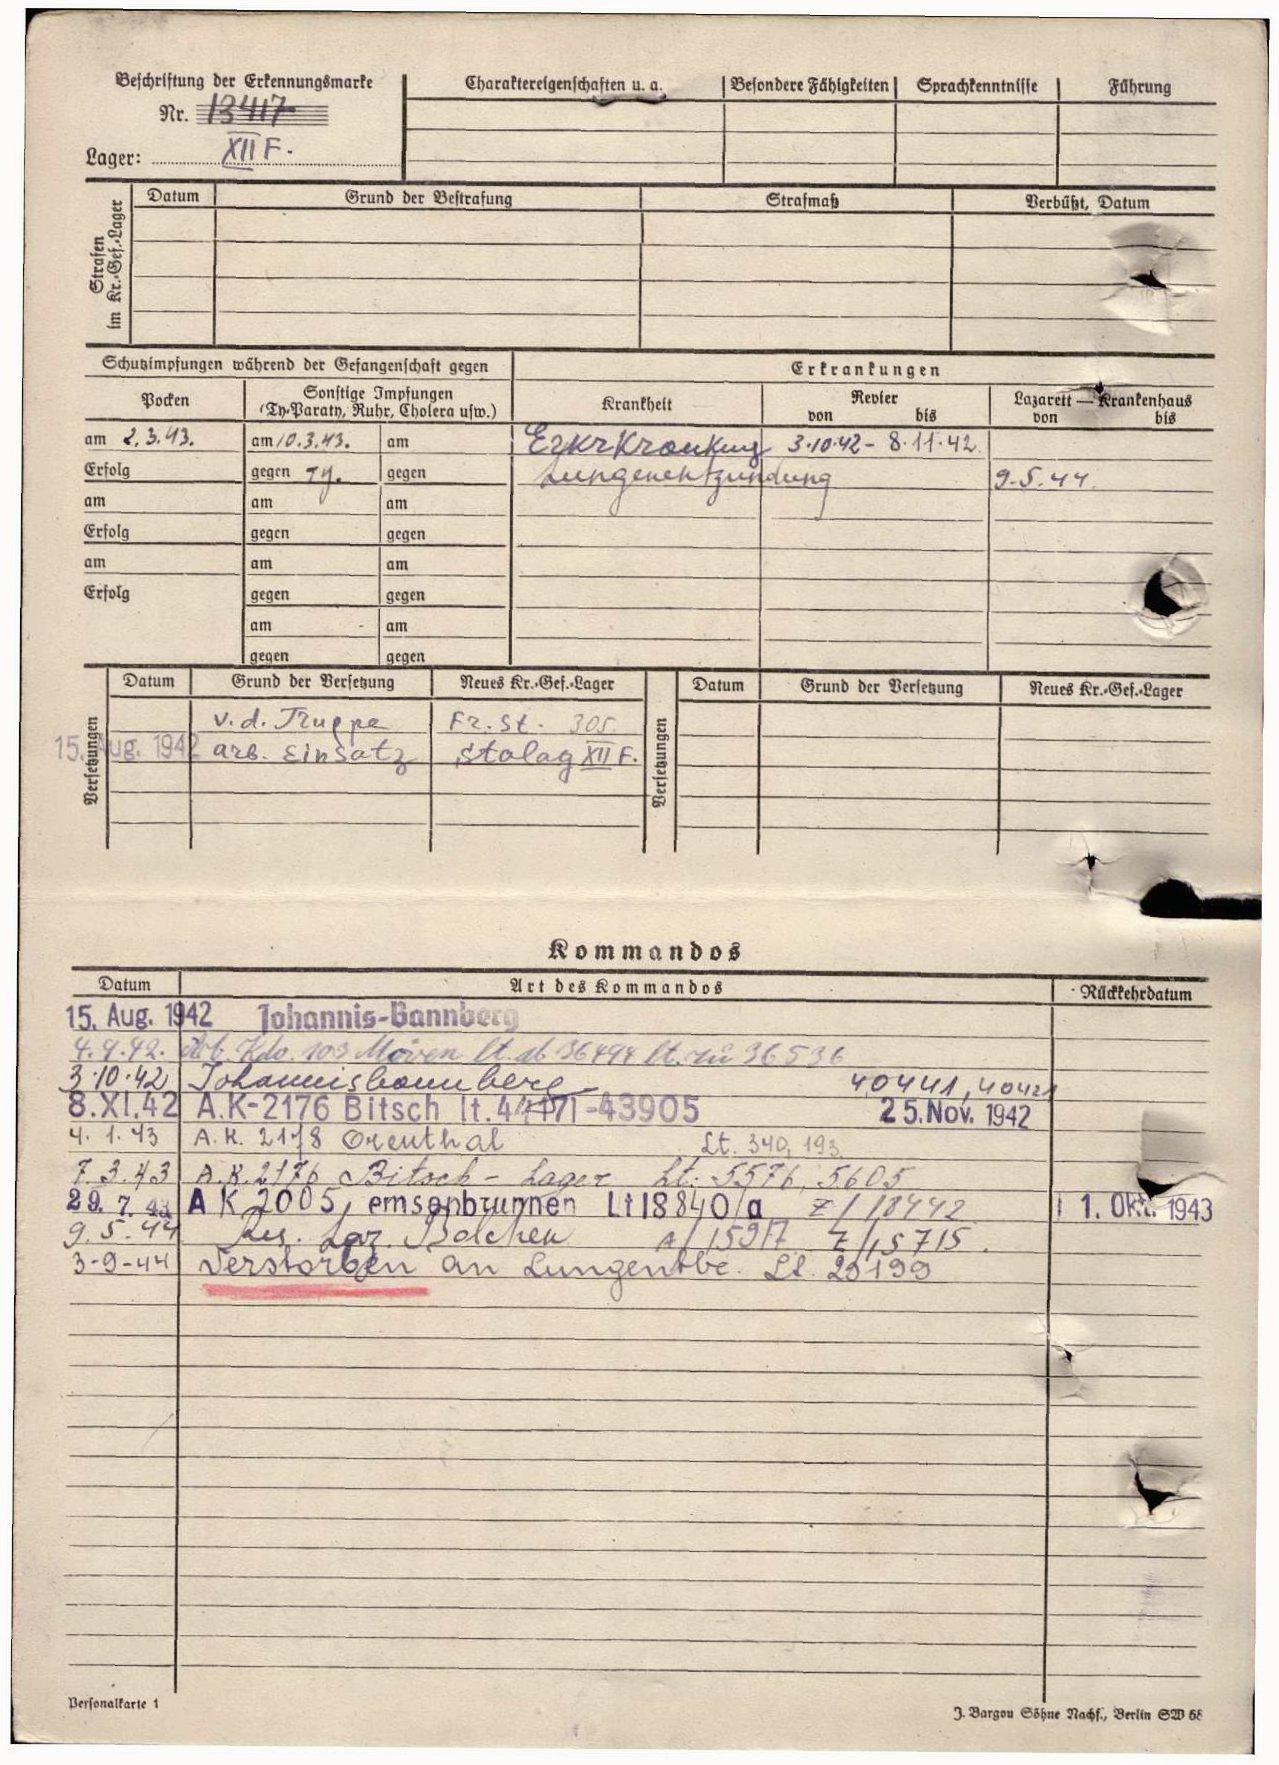 Beschriftung der Erkennungsmarke
Nr. 13417
Lager: XII F.
Charaktereigenschaften u. a. Besondere Fähigkeiten Sprachkenntnisse Führung
Strafen im Kr.-Gef.-Lager
Datum Grund der Bestrafung Strafmaß Verbüßt, Datum
Schutzimpfungen während der Gefangenschaft gegen Erkrankungen
Pocken Sonstige Impfungen (Ty.Paraty, Ruhr, Cholera usw.) Krankheit Revier von bis Lazarett — Krankenhaus von bis
am 2.3.43. am 10.3.43. am 3.10.42 - 8.11.42.
Erfolg gegen Ty. gegen Lungenentzündung 9.5.44.
am am am
Erfolg gegen gegen
am am am
Erfolg gegen gegen
am am
gegen gegen
Versetzungen
Datum Grund der Versetzung Neues Kr.-Gef.-Lager
v. d. Truppe Fr. St. 305
15. Aug. 1942 arb. Einsatz Stalag XII F.
Versetzungen
Datum Grund der Versetzung Neues Kr.-Gef.-Lager
Kommandos
Datum Art des Kommandos Rückkehrdatum
15. Aug. 1942 Johannis-Bannberg
4.9.42. Arb. Kdo. 103 lt. ab 36494 lt. zu 36536
3.10.42 Johannisbannberg 40441, 40421
8.XI.42 A.K-2176 Bitsch lt. 44171-43905 25. Nov. 1942
4.1.43 A.K. 2178 Lt. 340, 193.
7.3.43 A.K. 2176 Bitsch-Lager Lt: 5576, 5605
29.7.43 A K 2005, emsenbrunnen Lt 18840/a Z/18442 1 1. Okt. 1943
9.5.44 Res. Laz. Bolchen A/15917 Z/15715.
3-9-44 Verstorben an Lungentbc. Lt. 25199
Personalkarte 1
J. Bargou Söhne Nachf., Berlin SW 68